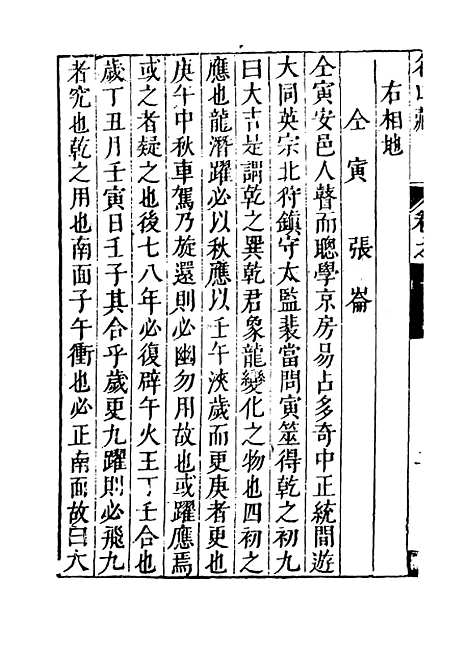 名山藏 卷之
右相地
仝寅 張崙
仝寅安邑人瞽而聰學京房易占多奇中正統間遊
大同英宗北狩鎮守太監裴當問寅筮得乾之初九
曰大吉是謂乾之巽乾君象龍變化之物也四初之
應也龍潛躍必以秋應以壬午浹歲而更庚者更也
庚午中秋車駕乃旋還則必幽勿用故也或躍應焉
或之者疑之也後七八年必復辟午火王丁壬合也
歲丁丑月壬寅日壬子其合乎歲更九躍則必飛九
者究也乾之用也南面子午衝也必正南面故曰大